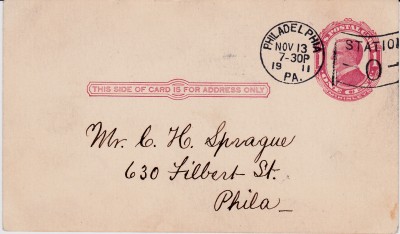 PHILADELPHIA
NOV 13
7-30P
19 11
PA.
STATION
O
U.S. POSTAL
THIS SIDE OF CARD IS FOR ADDRESS ONLY
Mr. C. H. Sprague
630 Filbert St.
Phila_